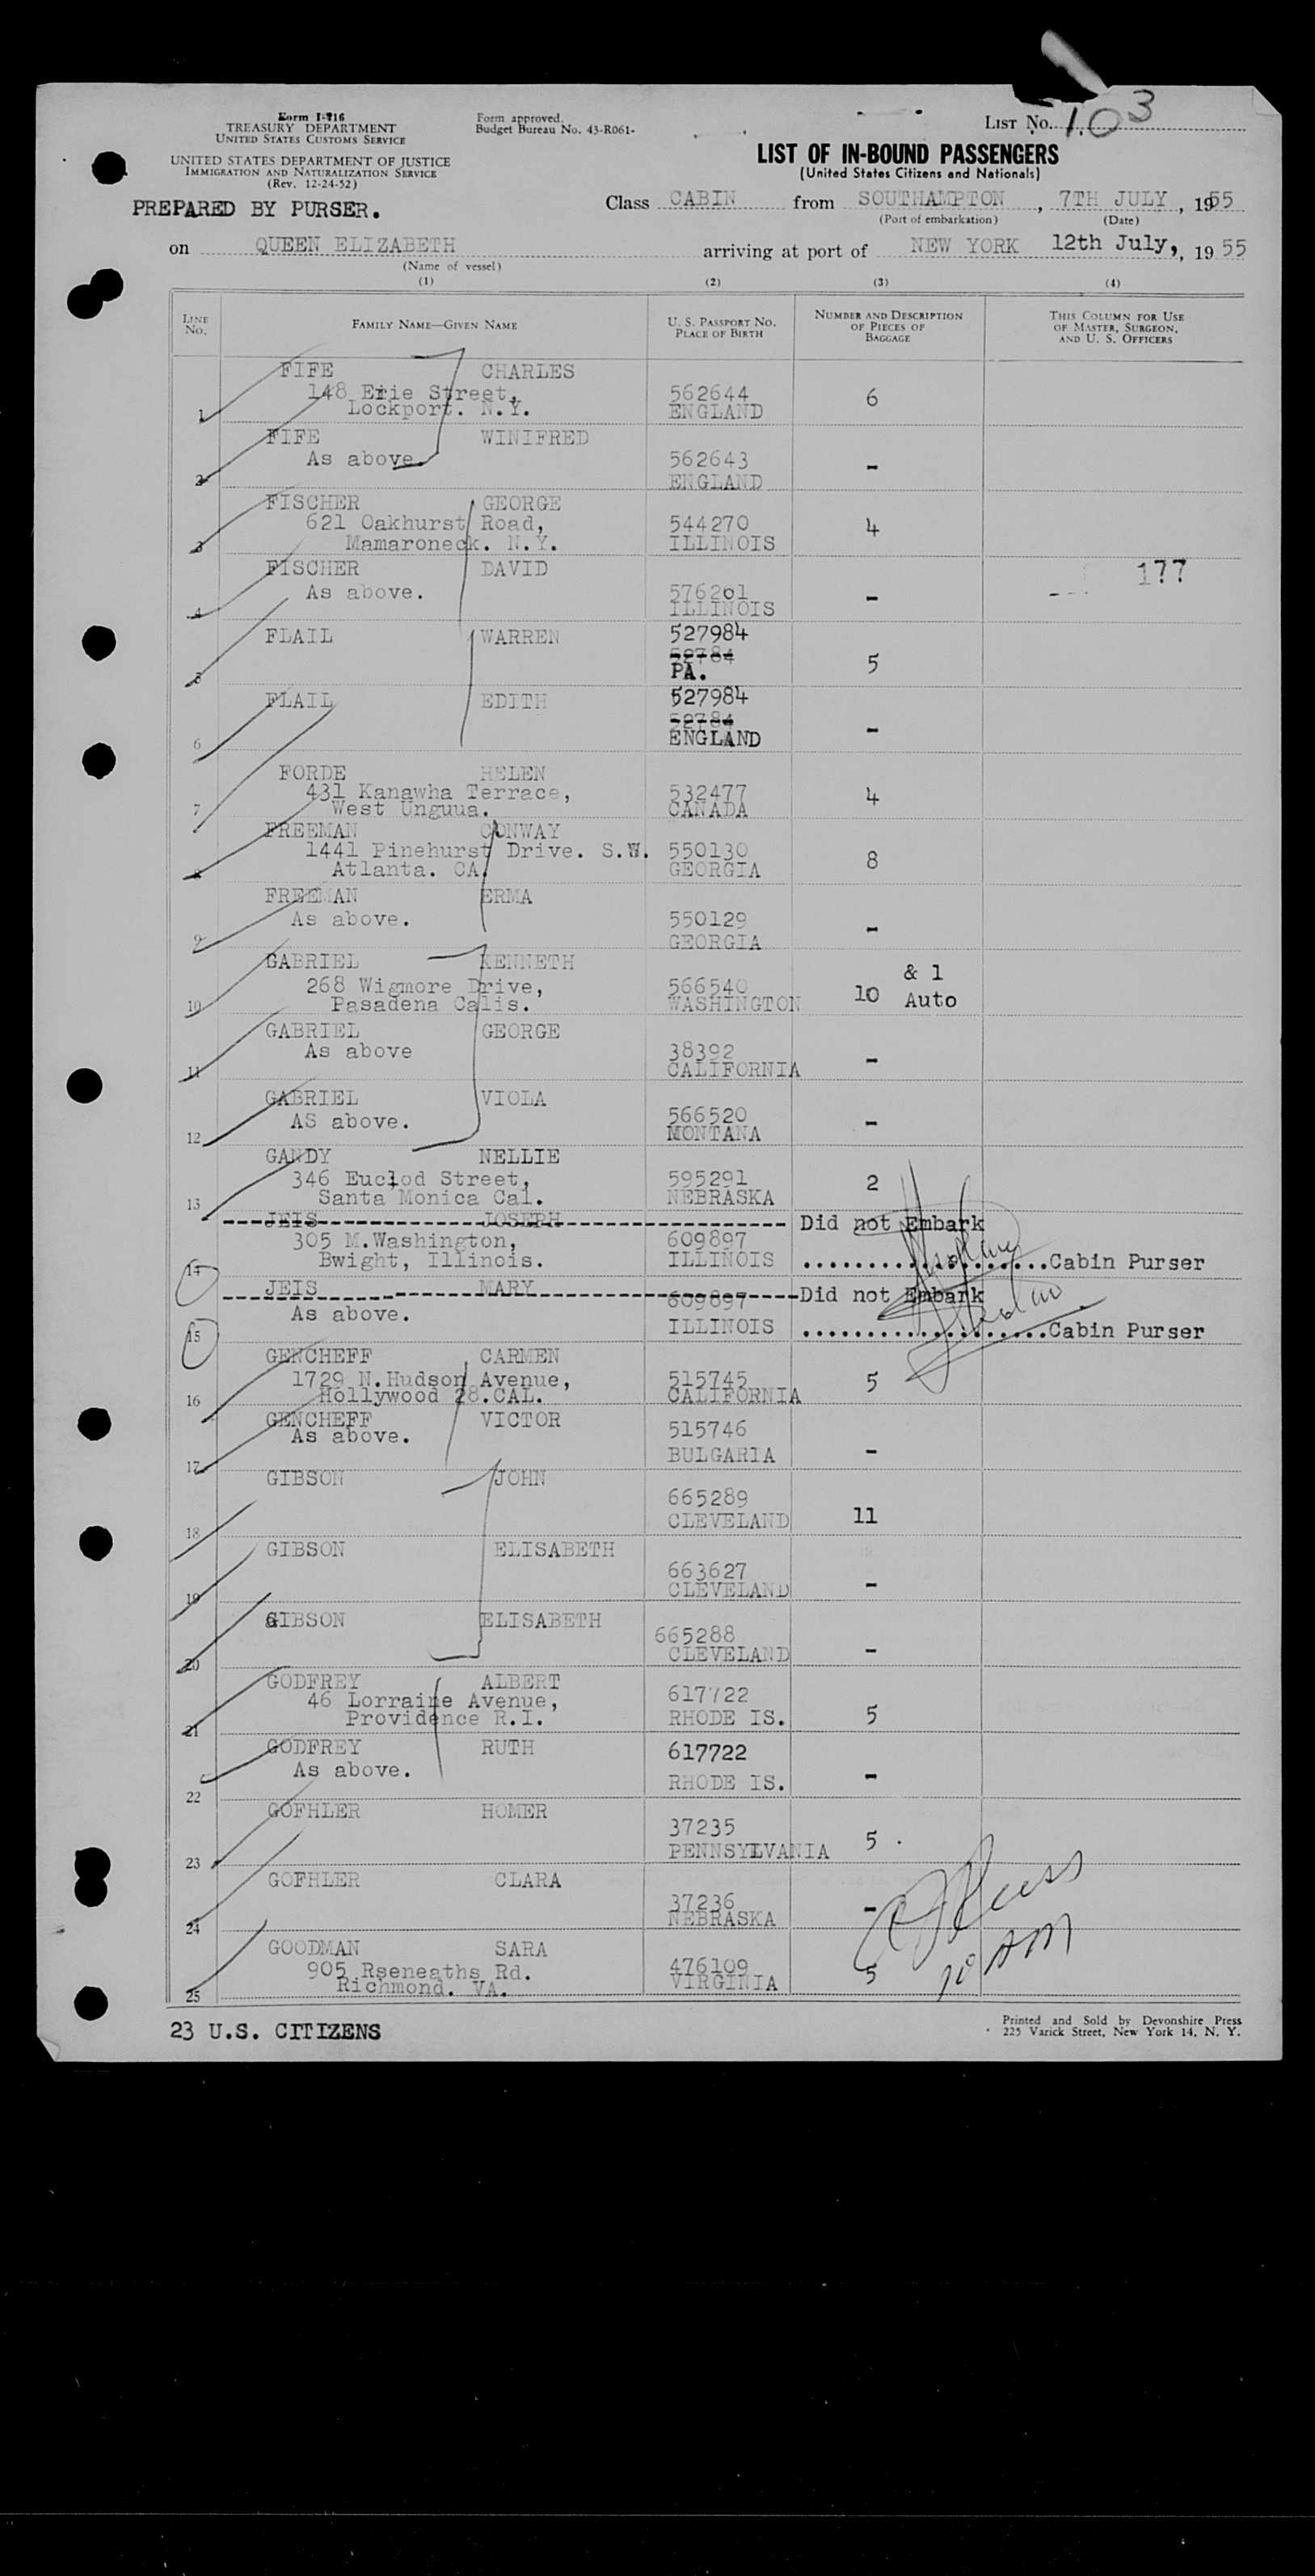 Form I-416
TREASURY DEPARTMENT
UNITED STATES CUSTOMS SERVICE
UNITED STATES DEPARTMENT OF JUSTICE
IMMIGRATION AND NATURALIZATION SERVICE
(Rev. 12-24-52)
PREPARED BY PURSER.
Form approved.
Budget Bureau No. 43-R061-
LIST NO. 103
LIST OF IN-BOUND PASSENGERS
(United States Citizens and Nationals)
Class CABIN from SOUTHAMPTON, 7TH JULY, 1955
(Port of embarkation) (Date)
on QUEEN ELIZABETH arriving at port of NEW YORK 12th July,, 1955
(Name of vessel)
(1) (2) (3) (4)
LINE NO. FAMILY NAME—GIVEN NAME U. S. PASSPORT NO. PLACE OF BIRTH NUMBER AND DESCRIPTION OF PIECES OF BAGGAGE THIS COLUMN FOR USE OF MASTER, SURGEON, AND U. S. OFFICERS
FIFE CHARLES
148 Erie Street, 562644 6
1 Lockport. N.Y. ENGLAND
FIFE WINIFRED
As above. 562643 -
2 ENGLAND
FISCHER GEORGE
621 Oakhurst Road, 544270 4
3 Mamaroneck. N.Y. ILLINOIS
FISCHER DAVID 177
As above. 576201 -
4 ILLINOIS
FLAIL WARREN 527984
52784 5
5 PA.
FLAIL EDITH 527984
52784 -
6 ENGLAND
FORDE HELEN
431 Kanawha Terrace, 532477 4
7 West Unguua. CANADA
FREEMAN CONWAY
1441 Pinehurst Drive. S.W. 550130 8
8 Atlanta. CA. GEORGIA
FREEMAN ERMA
As above. 550129 -
9 GEORGIA
GABRIEL KENNETH & 1
268 Wigmore Drive, 566540 10 Auto
10 Pasadena Calis. WASHINGTON
GABRIEL GEORGE
As above 38392 -
11 CALIFORNIA
GABRIEL VIOLA
AS above. 566520 -
12 MONTANA
GANDY NELLIE
346 Euclod Street, 595291 2
13 Santa Monica Cal. NEBRASKA
JEIS JOSEPH Did not Embark
305 M.Washington, 609897
14 Bwight, Illinois. ILLINOIS Cabin Purser
JEIS MARY 609897 Did not Embark
As above.
15 ILLINOIS Cabin Purser
GENCHEFF CARMEN
1729 N.Hudson Avenue, 515745 5
16 Hollywood 28.CAL. CALIFORNIA
GENCHEFF VICTOR
As above. 515746
17 BULGARIA -
GIBSON JOHN
665289
18 CLEVELAND 11
GIBSON ELISABETH
663627
19 CLEVELAND -
GIBSON ELISABETH
665288
20 CLEVELAND -
GODFREY ALBERT
46 Lorraine Avenue, 617722
21 Providence R.I. RHODE IS. 5
GODFREY RUTH 617722
As above.
22 RHODE IS. -
GOFHLER HOMER
37235
23 PENNSYLVANIA 5
GOFHLER CLARA
37236 -
24 NEBRASKA
GOODMAN SARA
905 Rseneaths Rd. 476109 5
25 Richmond. VA. VIRGINIA
10 AM
23 U.S. CITIZENS
Printed and Sold by Devonshire Press
225 Varick Street, New York 14, N. Y.